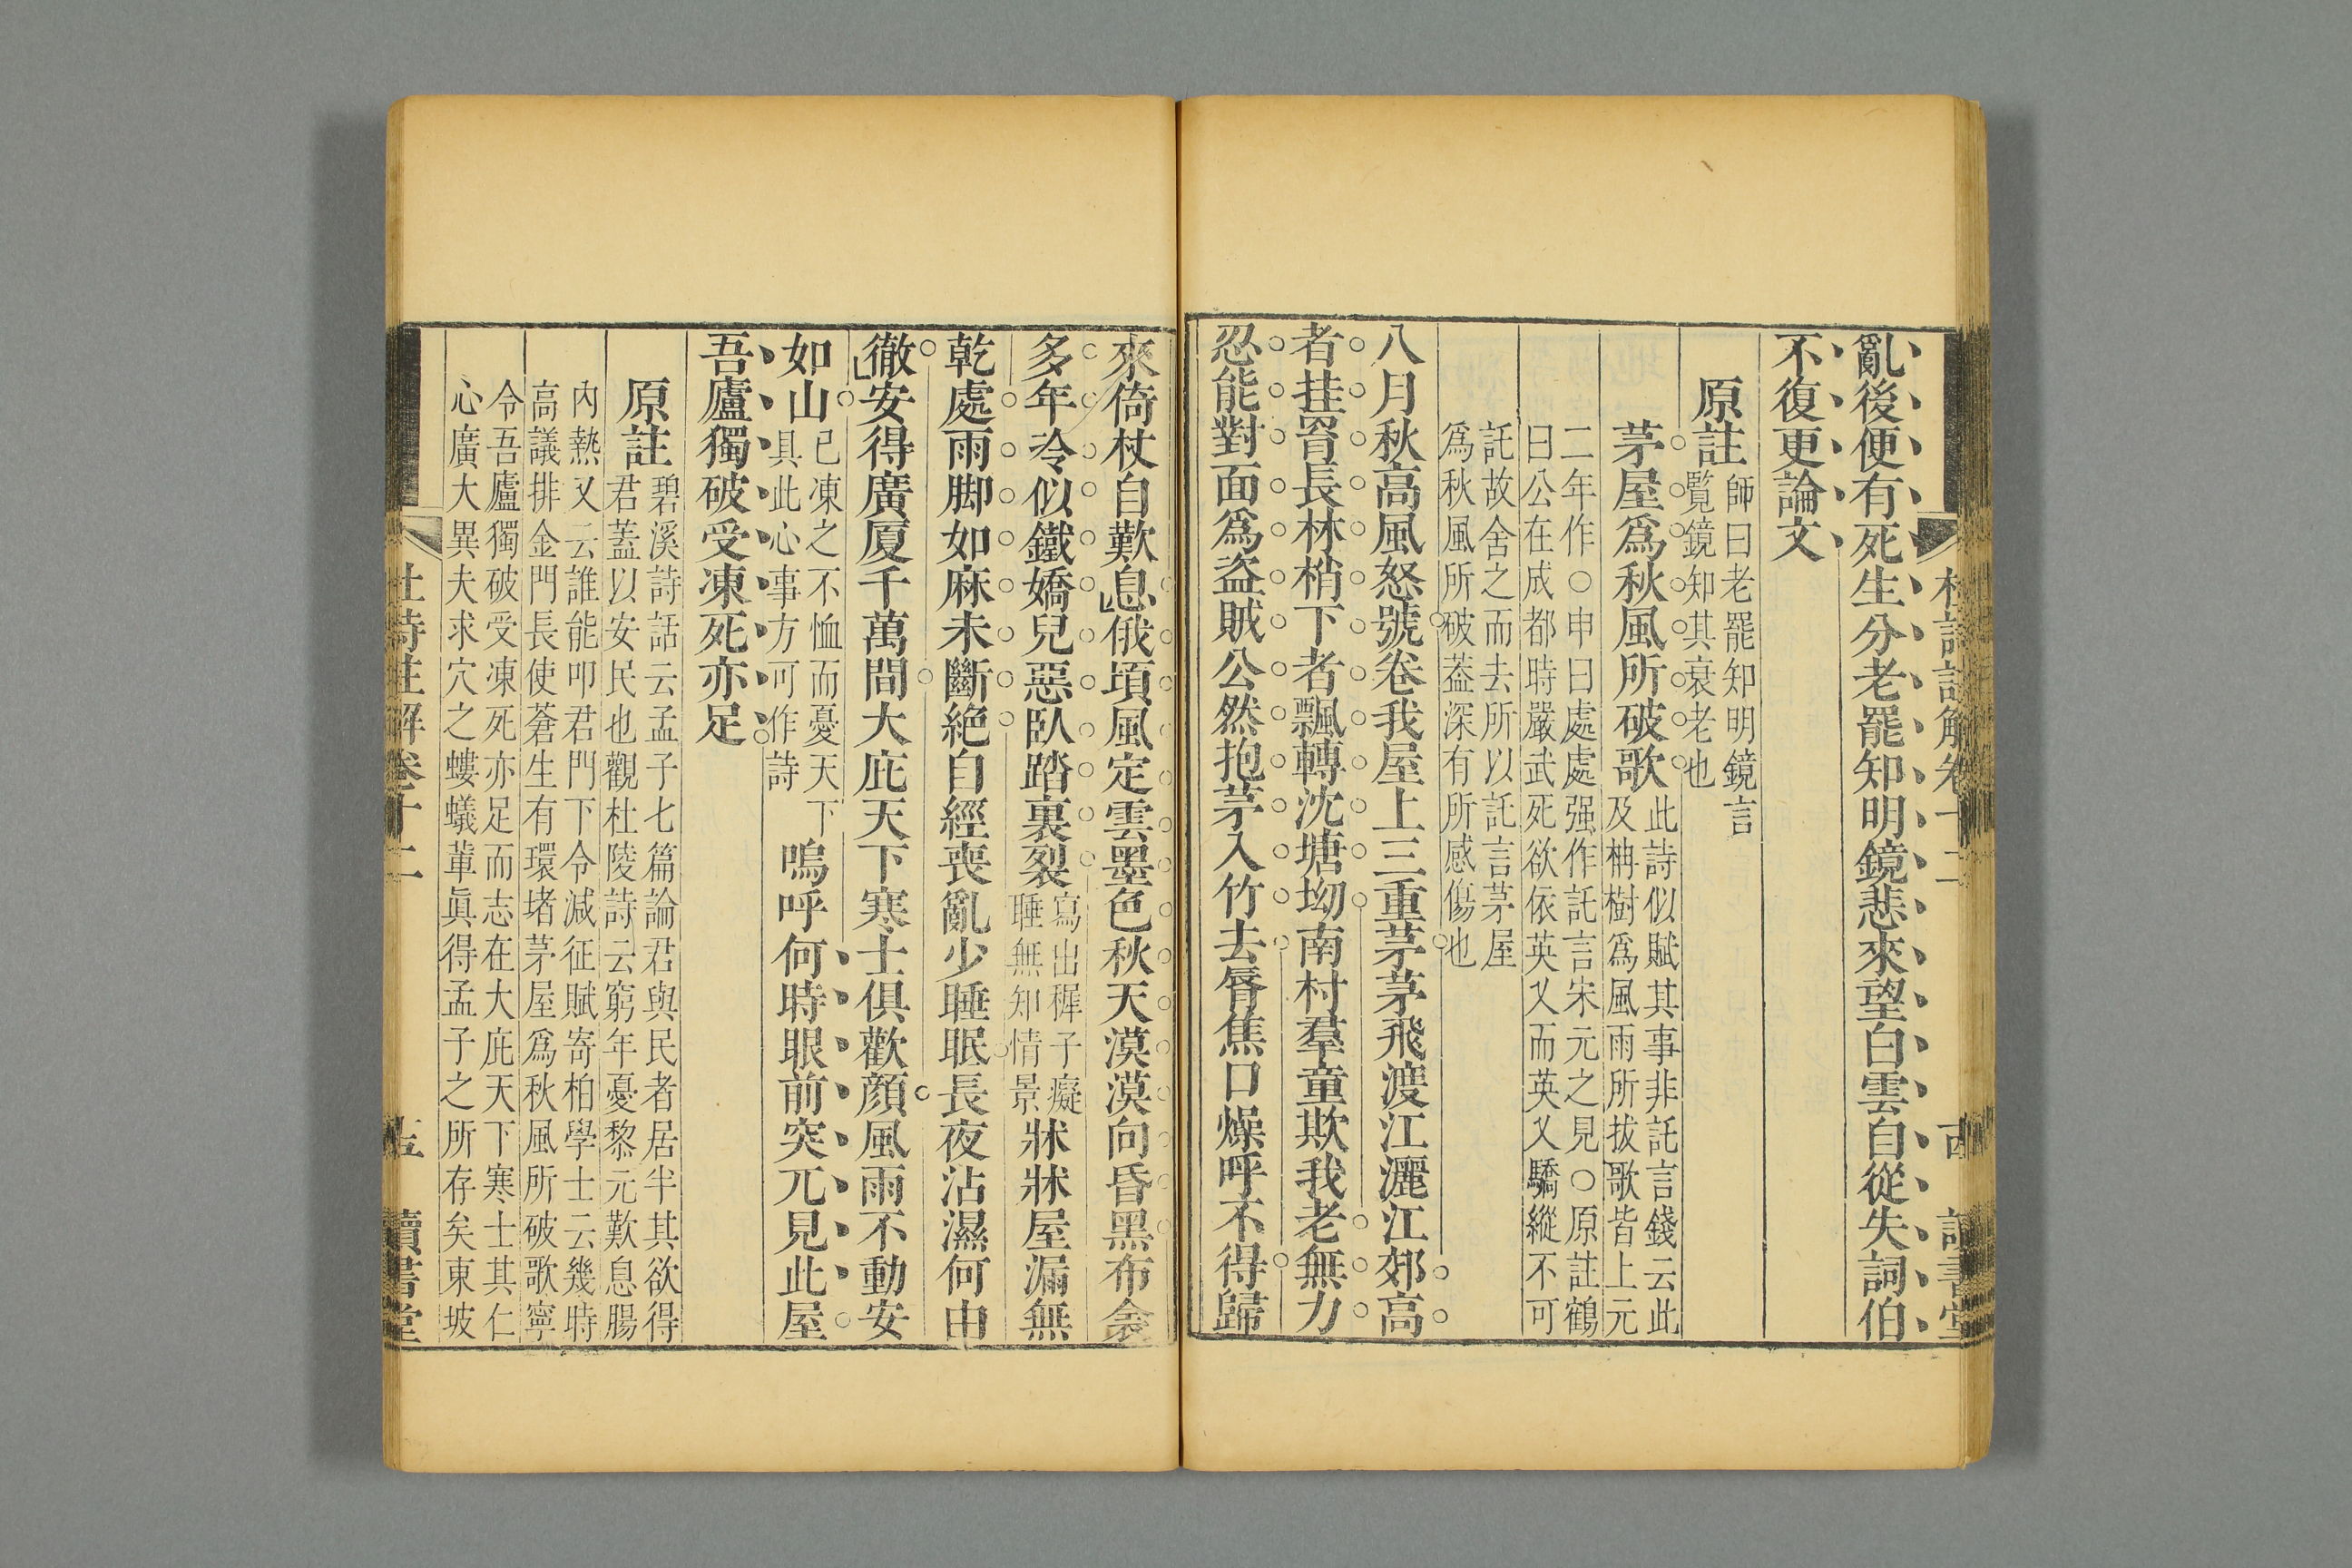 亂後便有死生分老罷知明鏡悲來望白雲自從失詞伯
不復更論文
原註師曰老罷知明鏡言
覽鏡知其衰老也
茅屋爲秋風所破歌此詩似賦其事非託言錢云此
及柟樹爲風雨所拔歌皆上元
二年作○申曰處處强作託言宋元之見○原註鶴
曰公在成都時嚴武死欲依英乂而英乂驕縱不可
託故舍之而去所以託言茅屋
爲秋風所破葢深有所感傷也
八月秋高風怒號卷我屋上三重茅茅飛渡江灑江郊高
者挂罥長林梢下者飄轉沈塘坳南村羣童欺我老無力
忍能對面爲盗賊公然抱茅入竹去脣焦口燥呼不得歸
來倚杖自歎息俄頃風定雲墨色秋天漠漠向昏黑布衾
多年冷似鐵嬌兒惡臥踏裏裂寫出穉子癡
睡無知情景牀牀屋漏無
乾處雨脚如麻未斷絶自經喪亂少睡眠長夜沾濕何由
徹安得廣厦千萬間大庇天下寒士俱歡顔風雨不動安
如山已凍之不恤而憂天下
具此心事方可作詩嗚呼何時眼前突兀見此屋
吾廬獨破受凍死亦足
原註碧溪詩話云孟子七篇論君與民者居半其欲得
君蓋以安民也觀杜陵詩云窮年憂黎元歎息腸
內熱又云誰能叩君門下令減征賦寄柏學士云幾時
高議排金門長使蒼生有環堵茅屋爲秋風所破歌寧
令吾廬獨破受凍死亦足而志在大庇天下寒士其仁
心廣大異夫求穴之螻蟻輩眞得孟子之所存矣東坡
杜詩註解卷十二 讀書堂